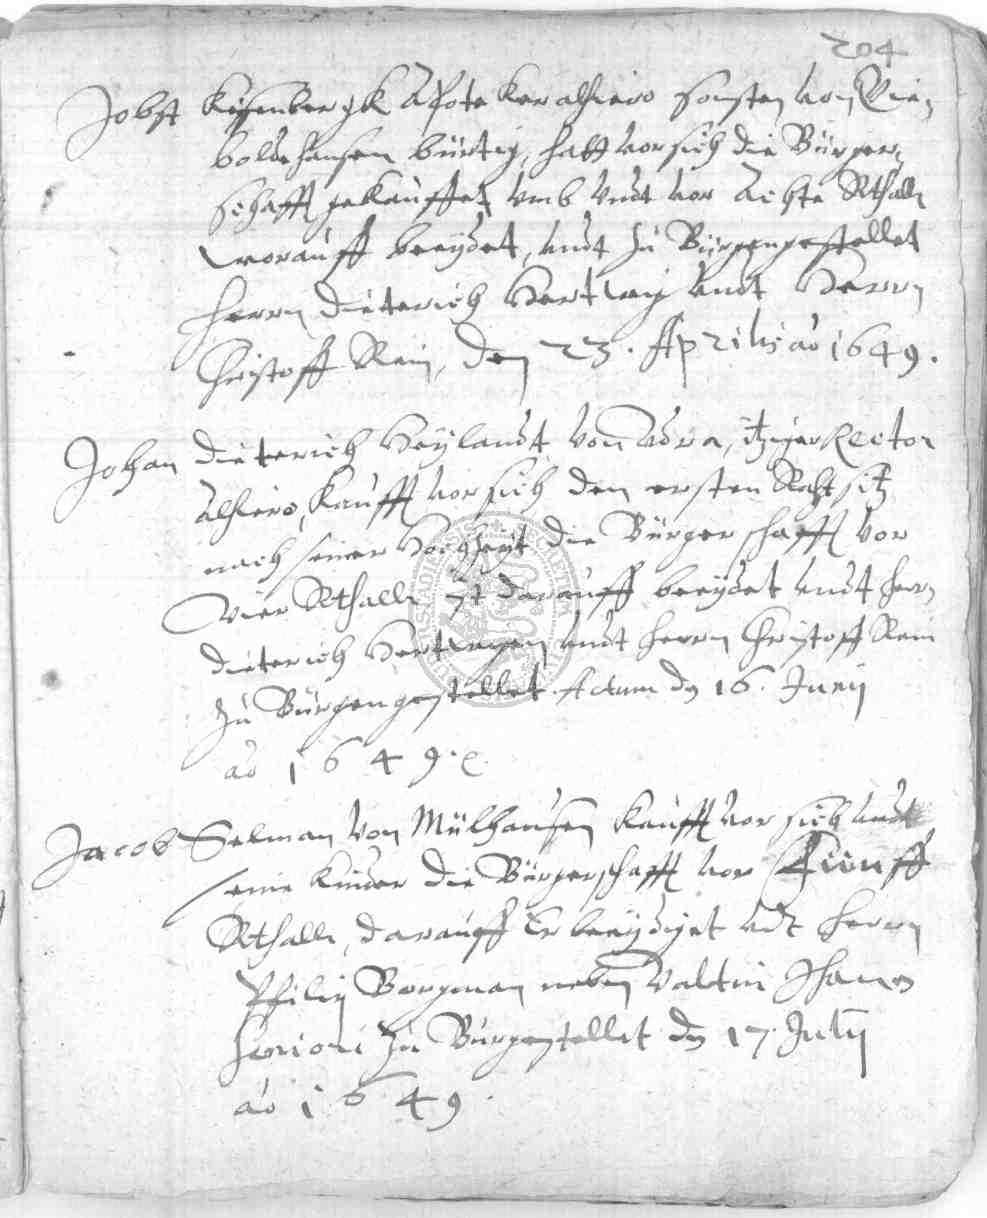 204
Jobst Kesenbergk Apoteker alhiero sonsten von Gie,
boldehausen bürtig, hatt vor sich die Bürger,
schafft gekauffet umb undt vor achte Rthall
worauff beeydet, undt zu Bürgen gestellet
Herrn Dieterich Hertwig undt Herrn
Christoff Rein, den 23. Aprilis ao 1649.
Johan Dieterich Heylandt von , itziger Rector
alhiero, kaufft vor sich den ersten Rahtsitz
nach seiner Hochzeyt die Bürgerschafft vor
Vier Rthall ist darauff beeydet undt Herrn
Dieterich Hertwigen undt Herrn Christoff Rein
zu Bürgen gestellet. Actum dn 16. Junij
ao 1649.
Jacob Selman von Mülhausen kaufft vor sich undt
seine Kinder die Bürgerschafft vor Fünff
Rthall, darauff er beeydiget undt Herrn
Philip Borgman neben Valtin
zu Bürgen stellet dn 17. Julij
ao 1649.